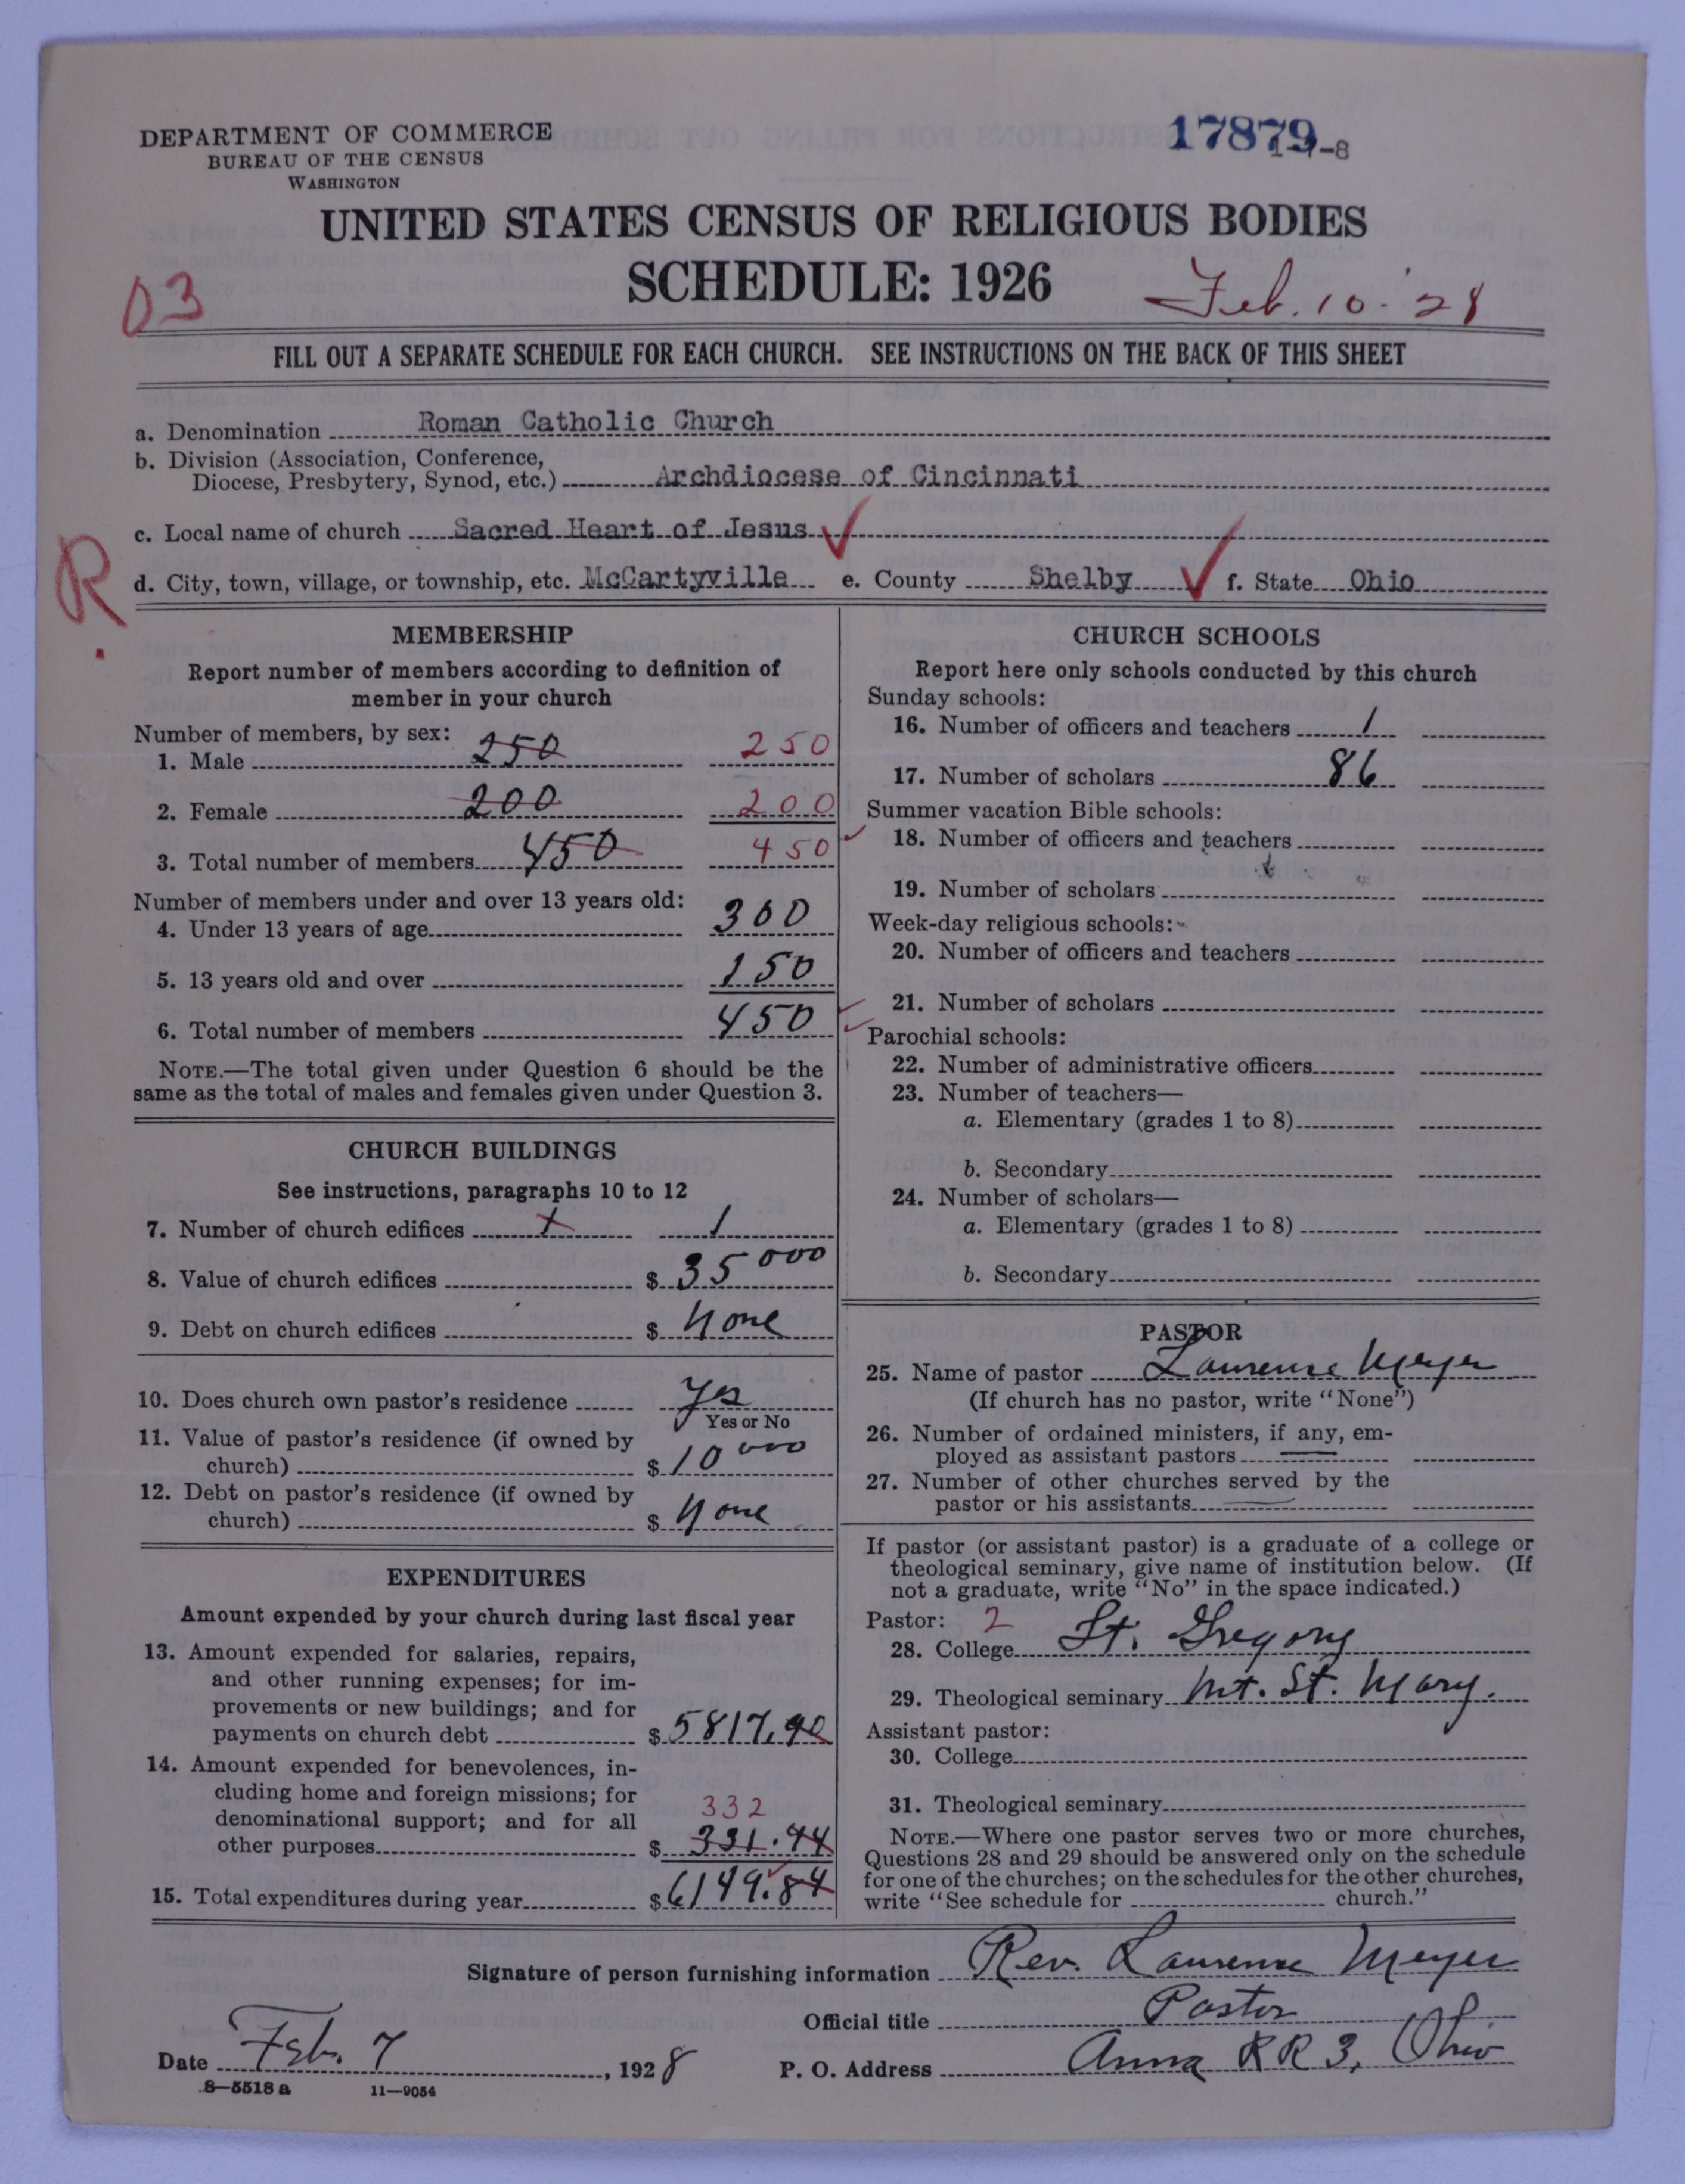 DEPARTMENT OF COMMERCE
BUREAU OF THE CENSUS
WASHINGTON
17879
1-7-8
UNITED STATES CENSUS OF RELIGIOUS BODIES
SCHEDULE: 1926
03
Feb. 10 - 28
FILL OUT A SEPARATE SCHEDULE FOR EACH CHURCH. SEE INSTRUCTIONS ON THE BACK OF THIS SHEET
a. Denomination Roman Catholic Church
b. Division (Association, Conference,
Diocese, Presbytery, Synod, etc.) Archdiocese of Cincinnati
c. Local name of church Sacred Heart of Jesus
R.
d. City, town, village, or township, etc. McCartyville e. County Shelby f. State Ohio
MEMBERSHIP
Report number of members according to definition of
member in your church
Number of members, by sex:
1. Male 250 250
2. Female 200 200
3. Total number of members 450 450
Number of members under and over 13 years old:
4. Under 13 years of age 300
5. 13 years old and over 150
6. Total number of members 450
NOTE.—The total given under Question 6 should be the
same as the total of males and females given under Question 3.
CHURCH BUILDINGS
See instructions, paragraphs 10 to 12
7. Number of church edifices 1 1
8. Value of church edifices $ 35000
9. Debt on church edifices $ None
10. Does church own pastor's residence Yes
Yes or No
11. Value of pastor's residence (if owned by
church) $ 10000
12. Debt on pastor's residence (if owned by
church) $ None
EXPENDITURES
Amount expended by your church during last fiscal year
13. Amount expended for salaries, repairs,
and other running expenses; for im-
provements or new buildings; and for
payments on church debt $ 5817.90
14. Amount expended for benevolences, in-
cluding home and foreign missions; for
denominational support; and for all
332
other purposes $ 331.94
15. Total expenditures during year $ 6149.84
CHURCH SCHOOLS
Report here only schools conducted by this church
Sunday schools:
16. Number of officers and teachers 1
17. Number of scholars 86
Summer vacation Bible schools:
18. Number of officers and teachers
19. Number of scholars
Week-day religious schools:
20. Number of officers and teachers
21. Number of scholars
Parochial schools:
22. Number of administrative officers
23. Number of teachers—
a. Elementary (grades 1 to 8)
b. Secondary
24. Number of scholars—
a. Elementary (grades 1 to 8)
b. Secondary
PASTOR
25. Name of pastor Laurence Meyer
(If church has no pastor, write "None")
26. Number of ordained ministers, if any, em-
ployed as assistant pastors
27. Number of other churches served by the
pastor or his assistants
If pastor (or assistant pastor) is a graduate of a college or
theological seminary, give name of institution below. (If
not a graduate, write "No" in the space indicated.)
Pastor: 2
28. College St. Gregory
29. Theological seminary Mt. St. Mary.
Assistant pastor:
30. College
31. Theological seminary
NOTE.—Where one pastor serves two or more churches,
Questions 28 and 29 should be answered only on the schedule
for one of the churches; on the schedules for the other churches,
write "See schedule for church."
Signature of person furnishing information Rev. Laurence Meyer
Official title Pastor
Date Feb. 7, 1928 P. O. Address Anna RR 3, Ohio
8—5518 a 11—9054